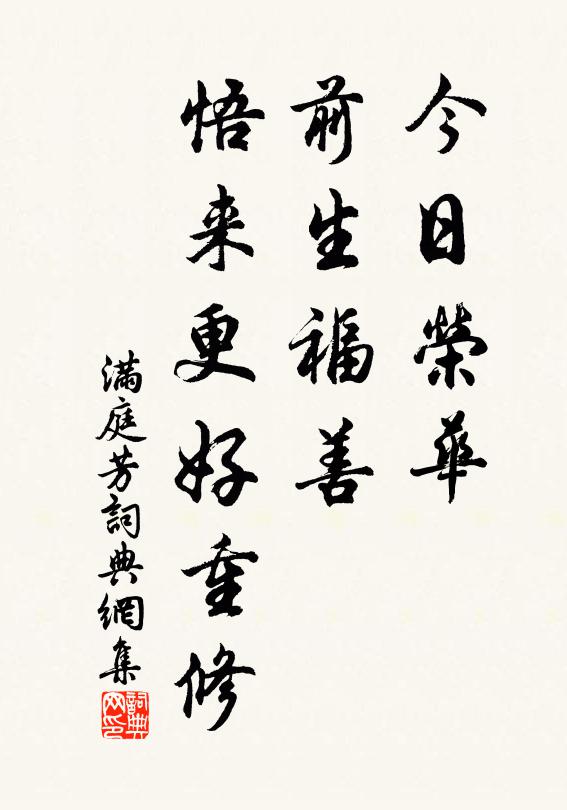 今日榮華
前生福善
悟来更好重修
滿庭芳詞典網集
詞典网印